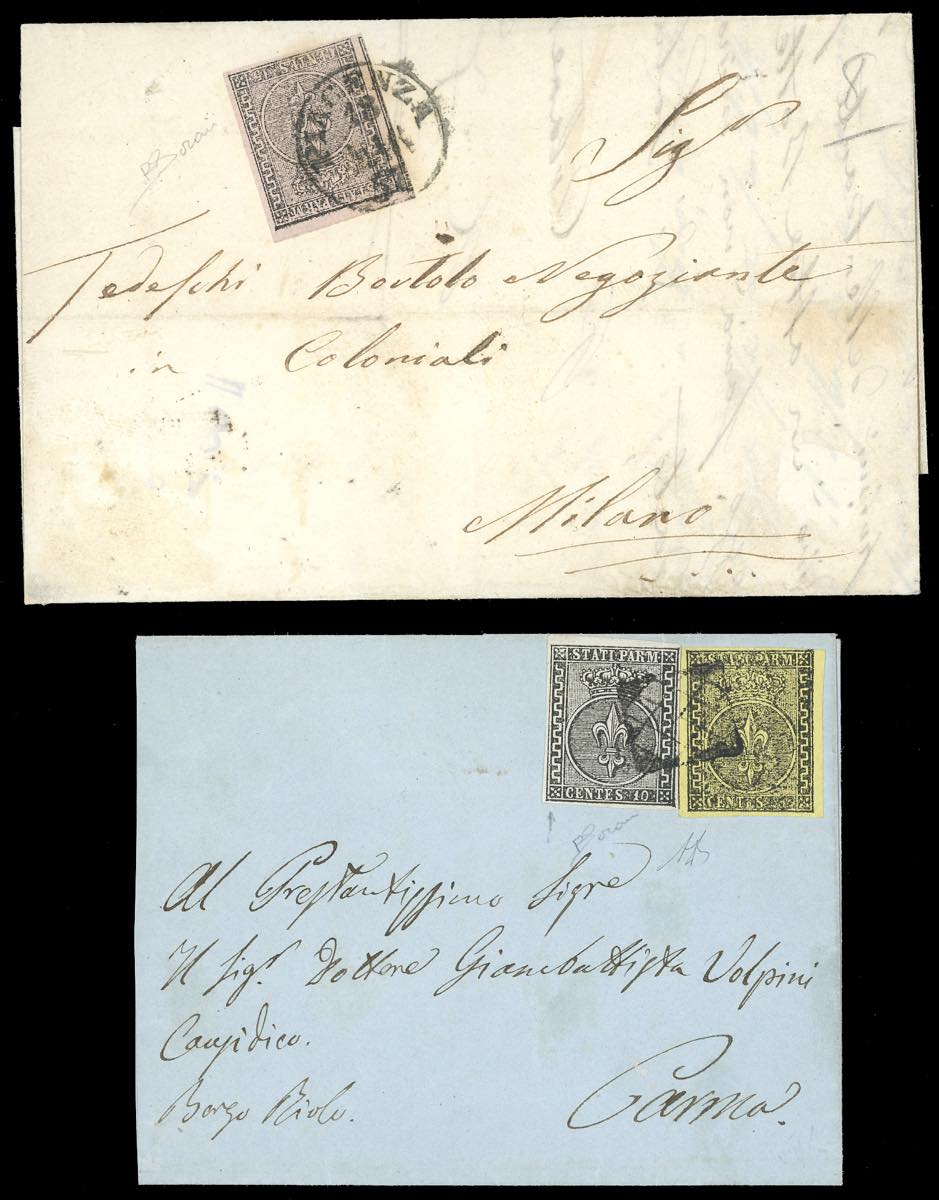 8
Sigr
Tedeschi Bortolo Negoziante
in Coloniali
Milano
STATI PARM
CENTES 10
STATI PARM
CENTES
Al Prestantissimo Sigre
Il Sigr Dottore Giambattista Volpini
Causidico.
Borgo Riolo.
Parma.